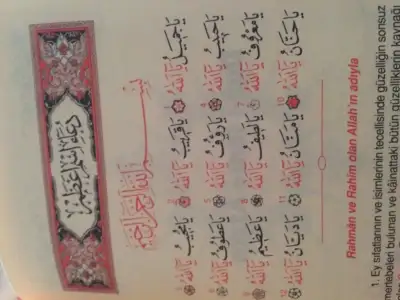 دعاء اسم اعظم
بسم الله الرحمن الرحيم
يَا جَمِيلُ يَا اَللّٰهُ يَا قَرِيبُ يَا اَللّٰهُ 2 يَا مُجِيبُ يَا اَللّٰهُ 3
يَا حَبِيبُ يَا اَللّٰهُ 4 يَا رَؤُفُ يَا اَللّٰهُ 5 يَا عَطُوفُ يَا اَللّٰهُ 6
يَا مَعْرُوفُ يَا اَللّٰهُ 7 يَا لَطِيفُ يَا اَللّٰهُ 8 يَا عَظِيمُ يَا اَللّٰهُ 9
يَا حَنَّانُ يَا اَللّٰهُ 10 يَا مَنَّانُ يَا اَللّٰهُ 11 يَا دَيَّانُ يَا اَللّٰهُ 12
Rahmân ve Rahîm olan Allah'ın adıyla
1. Ey sıfatlarının ve isimlerinin tecellisinde güzelliğin sonsuz
mertebeleri bulunan ve kâinattaki bütün güzelliklerin kaynağı